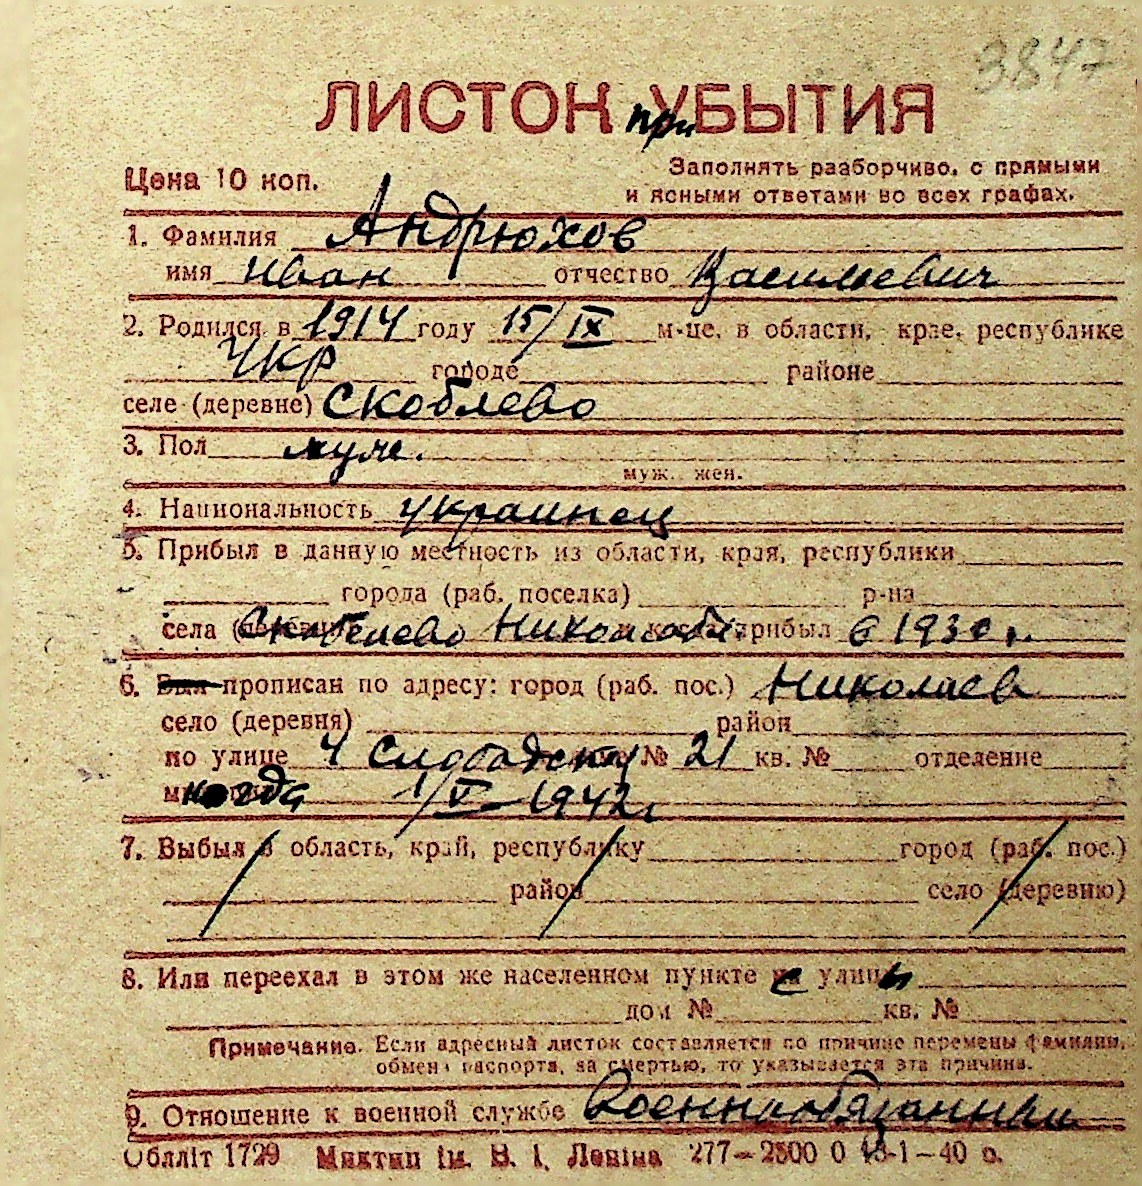 3847
ЛИСТОК при УБЫТИЯ
Цена 10 коп.
Заполнять разборчиво, с прямыми
и ясными ответами во всех графах.
1. Фамилия Андрюхов
имя Иван отчество Васильевич
2. Родился в 1914 году 15/IX м-це, в области, крае, республике
Укр городе районе
селе (деревне) Скоблево
3. Пол муж.
муж. жен.
4. Национальность украинец
5. Прибыл в данную местность из области, края, республики
города (раб. поселка) р-на
села Николаев прибыл в 1930 г.
6. Был прописан по адресу: город (раб. пос.) Николаев
село (деревня) район
по улице 4 Слободску № 21 кв. № отделение
когда 1/V-1942 г.
7. Выбыл в область, край, республику город (раб. пос.)
район село (деревню)
8. Или переехал в этом же населенном пункте с улицы
дом № кв. №
Примечание. Если адресный листок составляется по причине перемены фамилии,
обмена паспорта, за смертью, то указывается эта причина.
9. Отношение к военной службе Военнообязанный
Обллiт 1729 Миктип iм. В. І. Ленiна 277—2500 0 18-1—40 р.